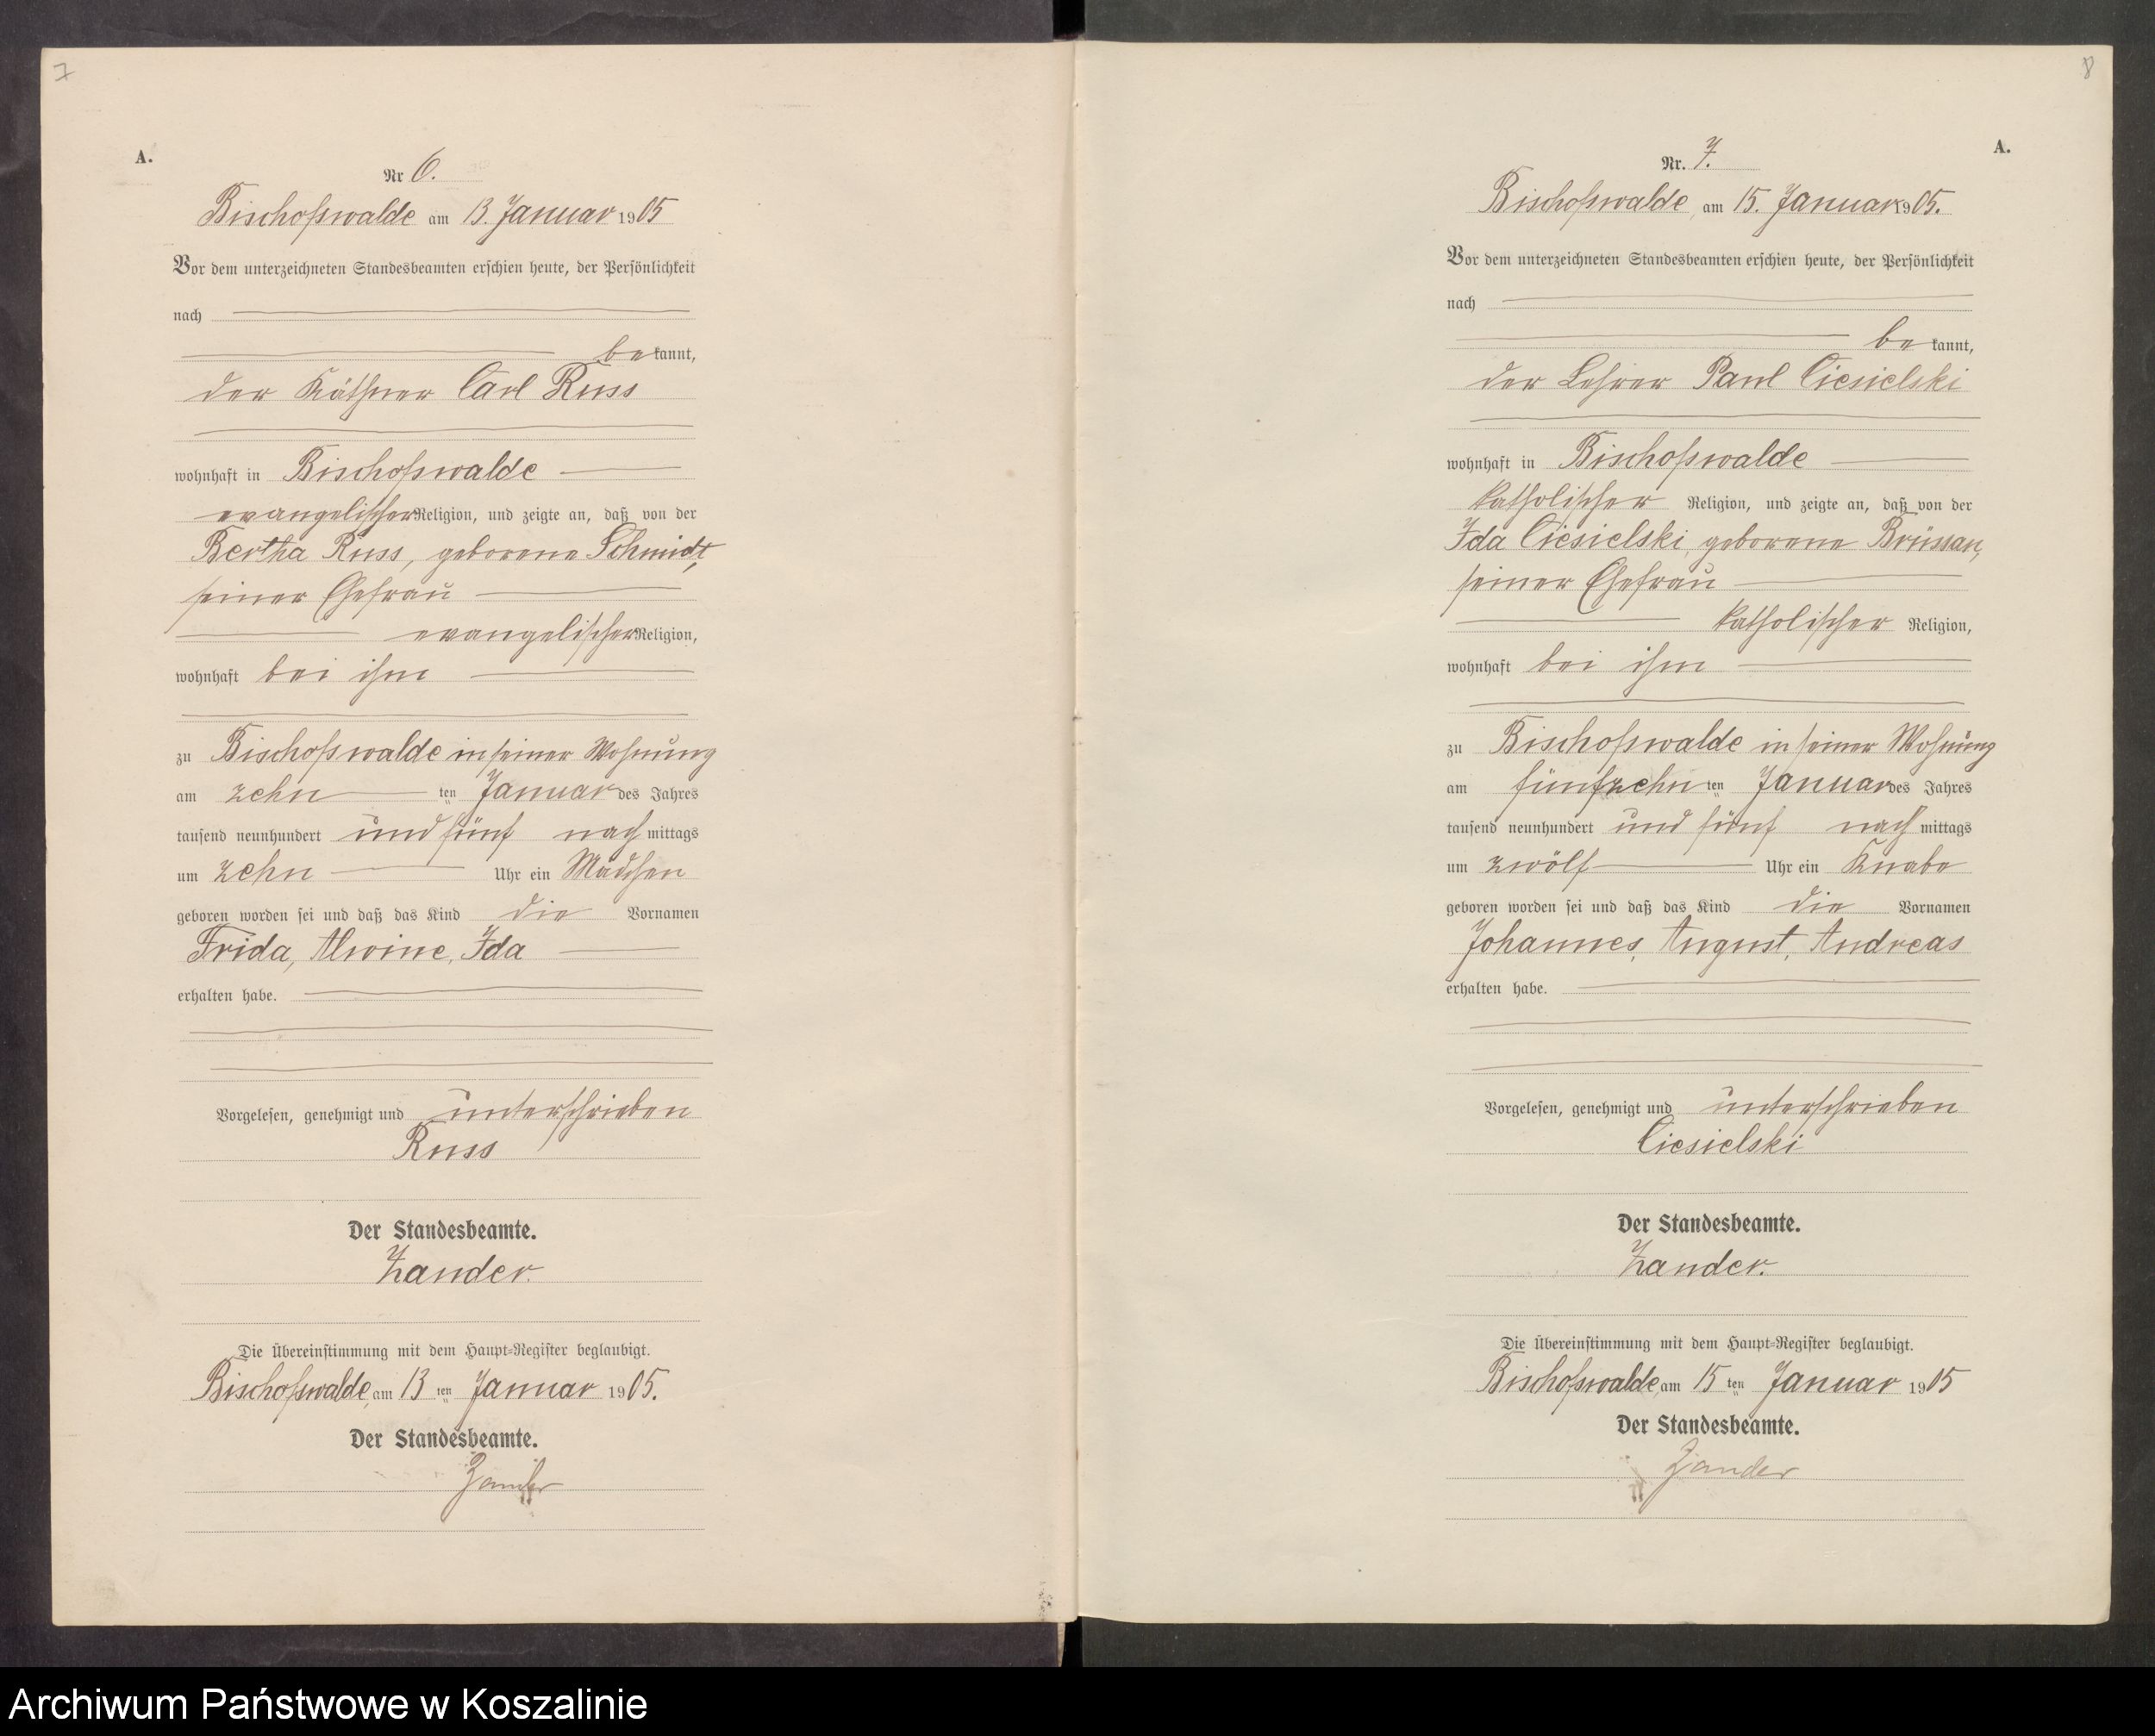 7
A.
Nr 6.
Bischofswalde am 13. Januar 1905
Vor dem unterzeichneten Standesbeamten erschien heute, der Persönlichkeit
nach
bekannt,
der Käthner Carl Russ
wohnhaft in Bischofswalde
evangelischer Religion, und zeigte an, daß von der
Bertha Russ, geborene Schmidt,
seiner Ehefrau
evangelischer Religion,
wohnhaft bei ihm
zu Bischofswalde in seiner Wohnung
am zehnten Januar des Jahres
tausend neunhundert und fünf nachmittags
um zehn Uhr ein Mädchen
geboren worden sei und daß das Kind die Vornamen
Frida, Alwine, Ida
erhalten habe.
Vorgelesen, genehmigt und unterschrieben
Russ
Der Standesbeamte.
Zander.
Die Übereinstimmung mit dem Haupt-Register beglaubigt.
Bischofswalde, am 13ten Januar 1905.
Der Standesbeamte.
Zander
8
A.
Nr. 7.
Bischofswalde, am 15. Januar 1905.
Vor dem unterzeichneten Standesbeamten erschien heute, der Persönlichkeit
nach
bekannt,
der Lehrer Paul Ciesielski
wohnhaft in Bischofswalde
katholischer Religion, und zeigte an, daß von der
Ida Ciesielski, geborene Brüssau,
seiner Ehefrau
katholischer Religion,
wohnhaft bei ihm
zu Bischofswalde in seiner Wohnung
am fünfzehnten Januar des Jahres
tausend neunhundert und fünf nachmittags
um zwölf Uhr ein Knabe
geboren worden sei und daß das Kind die Vornamen
Johannes, August, Andreas
erhalten habe.
Vorgelesen, genehmigt und unterschrieben
Ciesielski
Der Standesbeamte.
Zander.
Die Übereinstimmung mit dem Haupt-Register beglaubigt.
Bischofswalde, am 15ten Januar 1905
Der Standesbeamte.
Zander
Archiwum Państwowe w Koszalinie